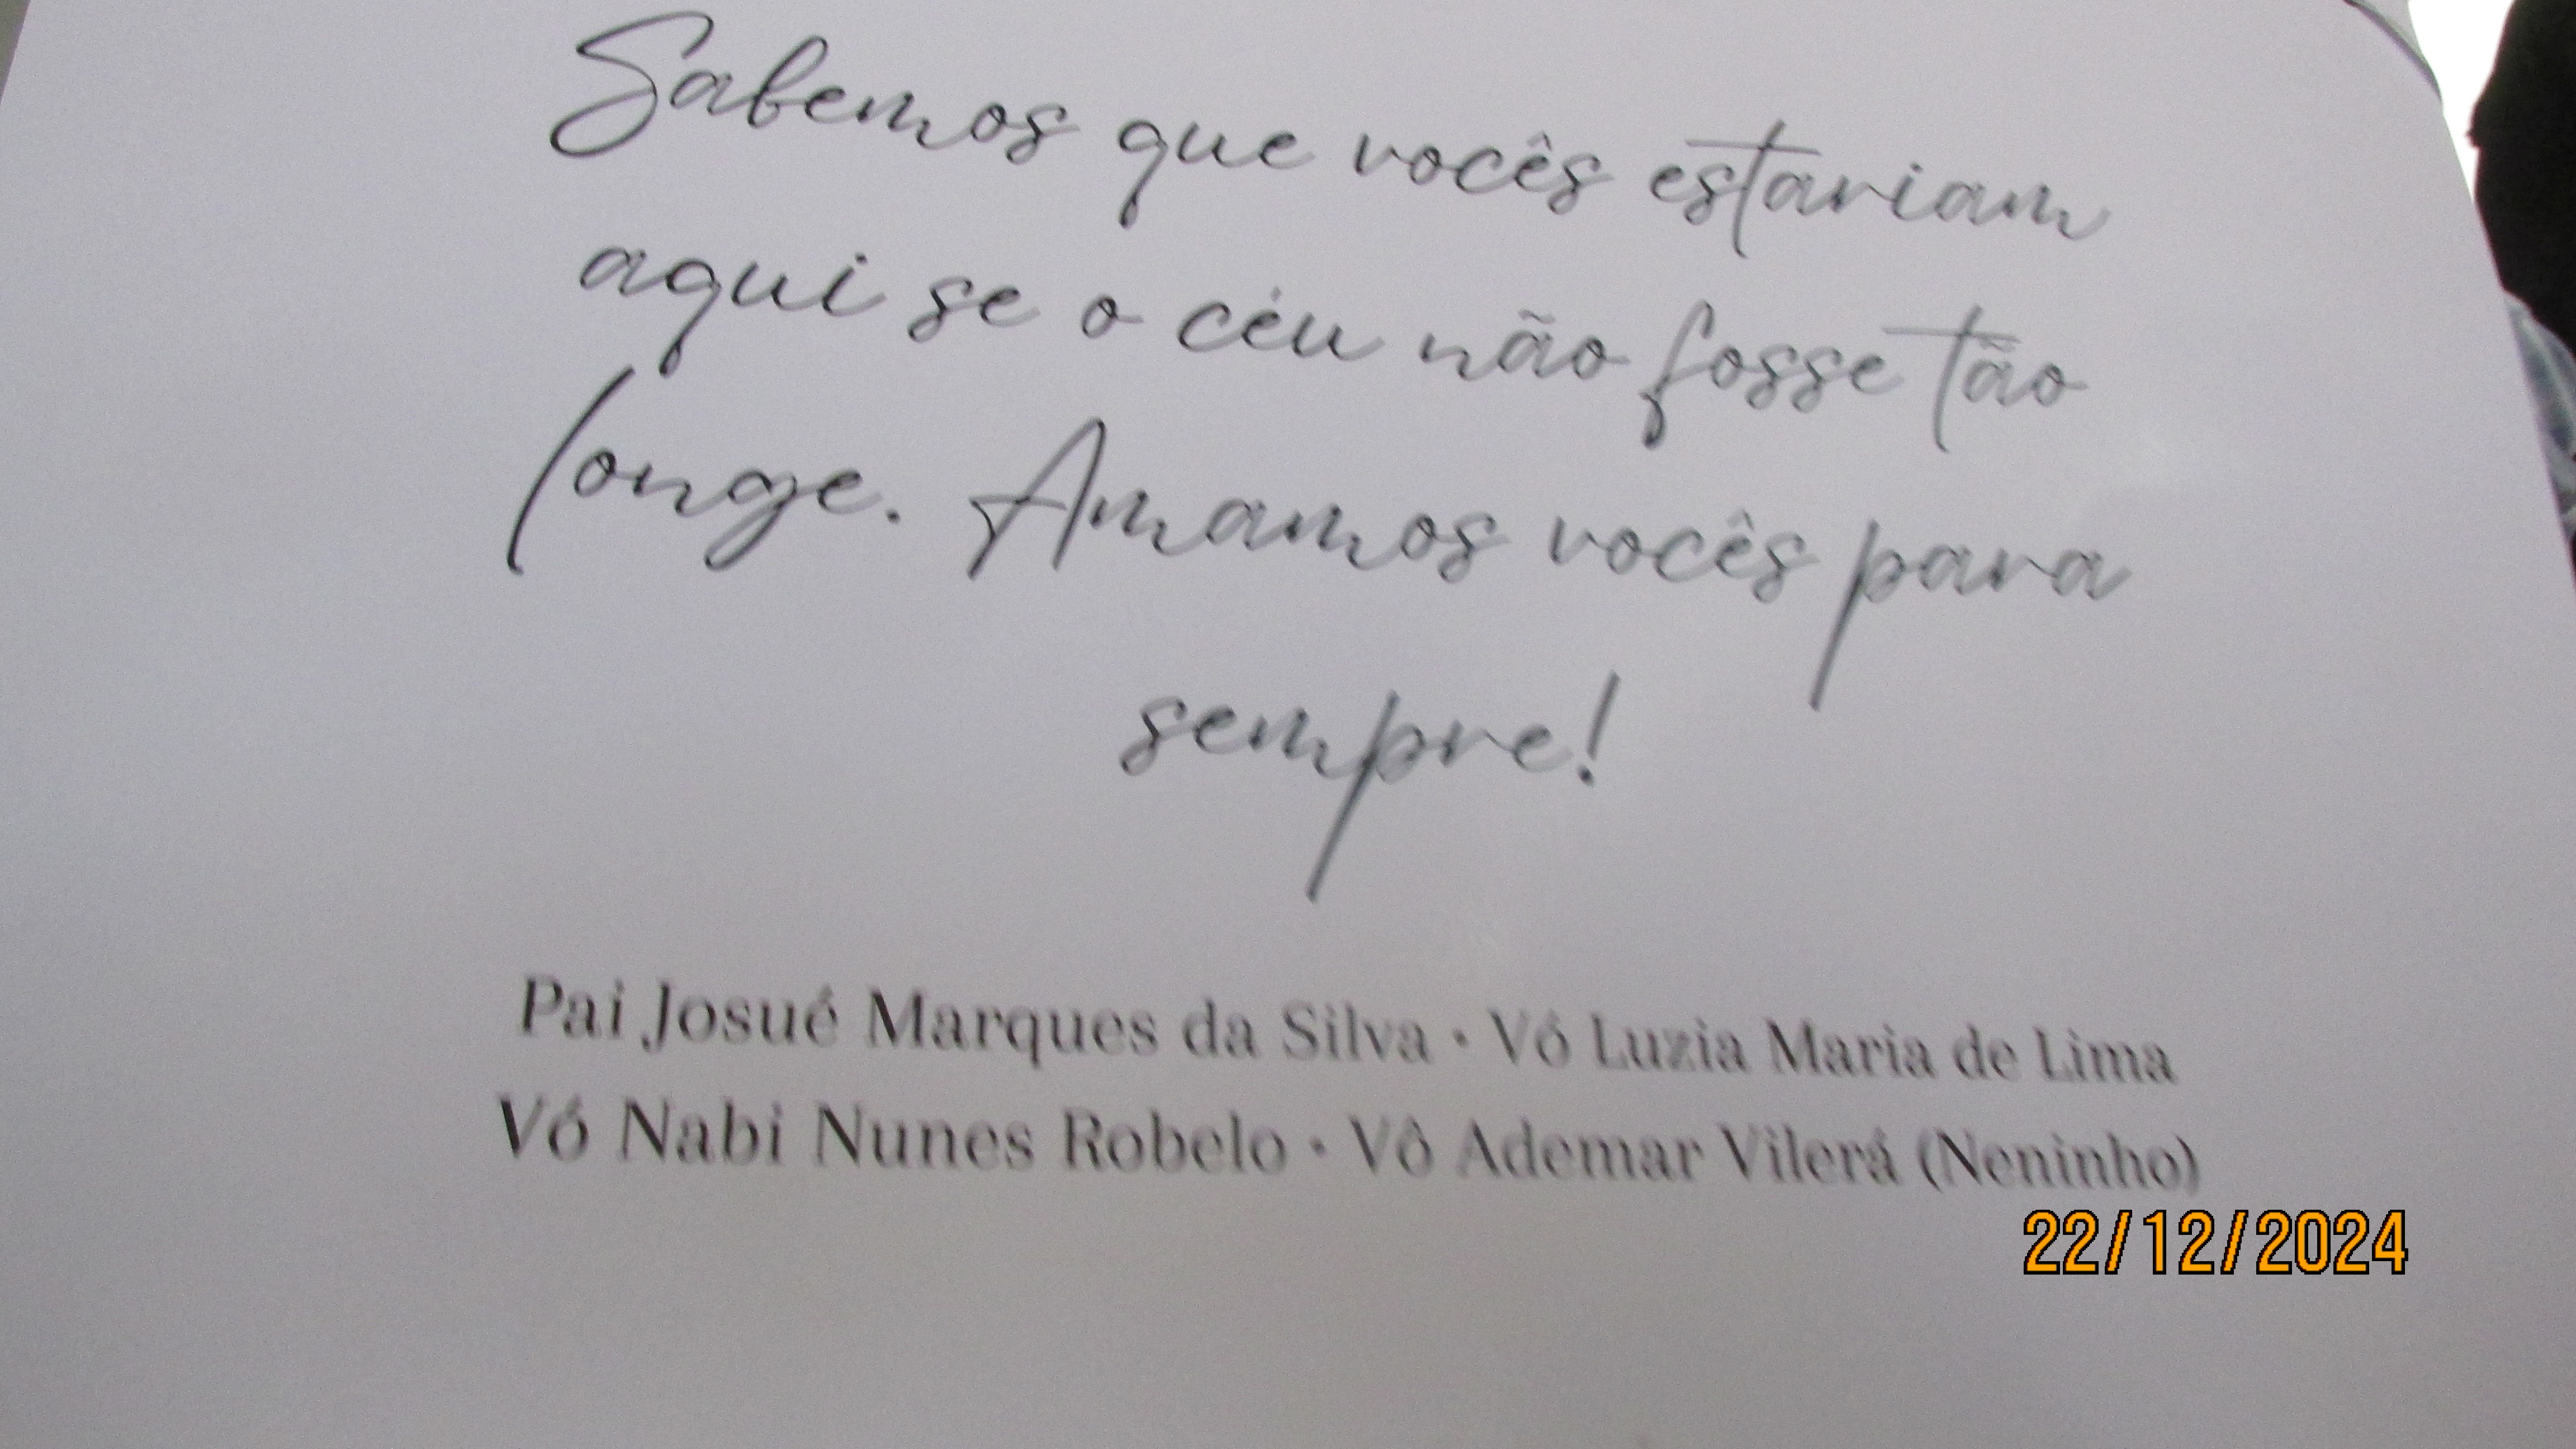 Sabemos que vocês estariam
aqui se o céu não fosse tão
longe. Amamos vocês para
sempre!
Pai Josué Marques da Silva • Vó Luzia Maria de Lima
Vó Nabi Nunes Robelo • Vô Ademar Vilerá (Neninho)
22/12/2024